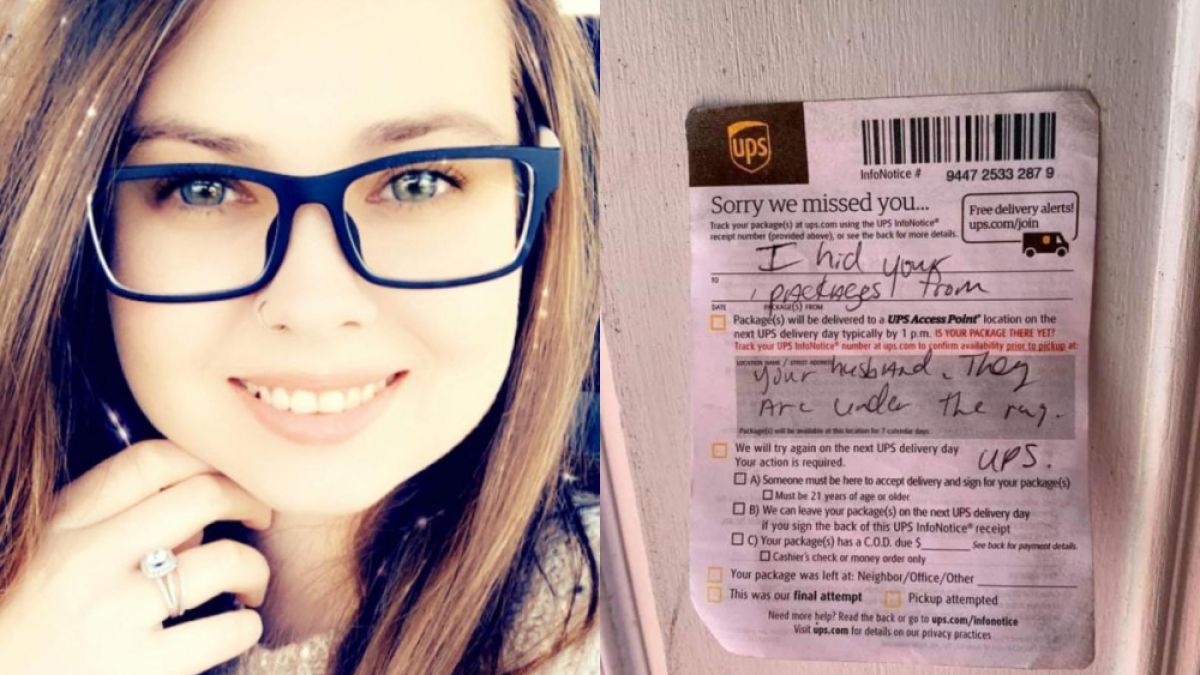 ups
InfoNotice # 9447 2533 287 9
Sorry we missed you...
Free delivery alerts!
ups.com/join
Track your package(s) at ups.com using the UPS InfoNotice®
receipt number (provided above), or see the back for more details.
I hid your
TO
packages from
DATE PACKAGE(S) FROM
Package(s) will be delivered to a UPS Access Point® location on the
next UPS delivery day typically by 1 p.m. IS YOUR PACKAGE THERE YET?
Track your UPS InfoNotice® number at ups.com to confirm availability prior to pickup at:
LOCATION NAME / STREET ADDRESS
your husband. They
Are under the rug.
Package(s) will be available at this location for 7 calendar days
UPS.
We will try again on the next UPS delivery day
Your action is required.
A) Someone must be here to accept delivery and sign for your package(s)
Must be 21 years of age or older
B) We can leave your package(s) on the next UPS delivery day
if you sign the back of this UPS InfoNotice® receipt
C) Your package(s) has a C.O.D. due $ See back for payment details.
Cashier's check or money order only
Your package was left at: Neighbor/Office/Other
This was our final attempt Pickup attempted
Need more help? Read the back or go to ups.com/infonotice
Visit ups.com for details on our privacy practices